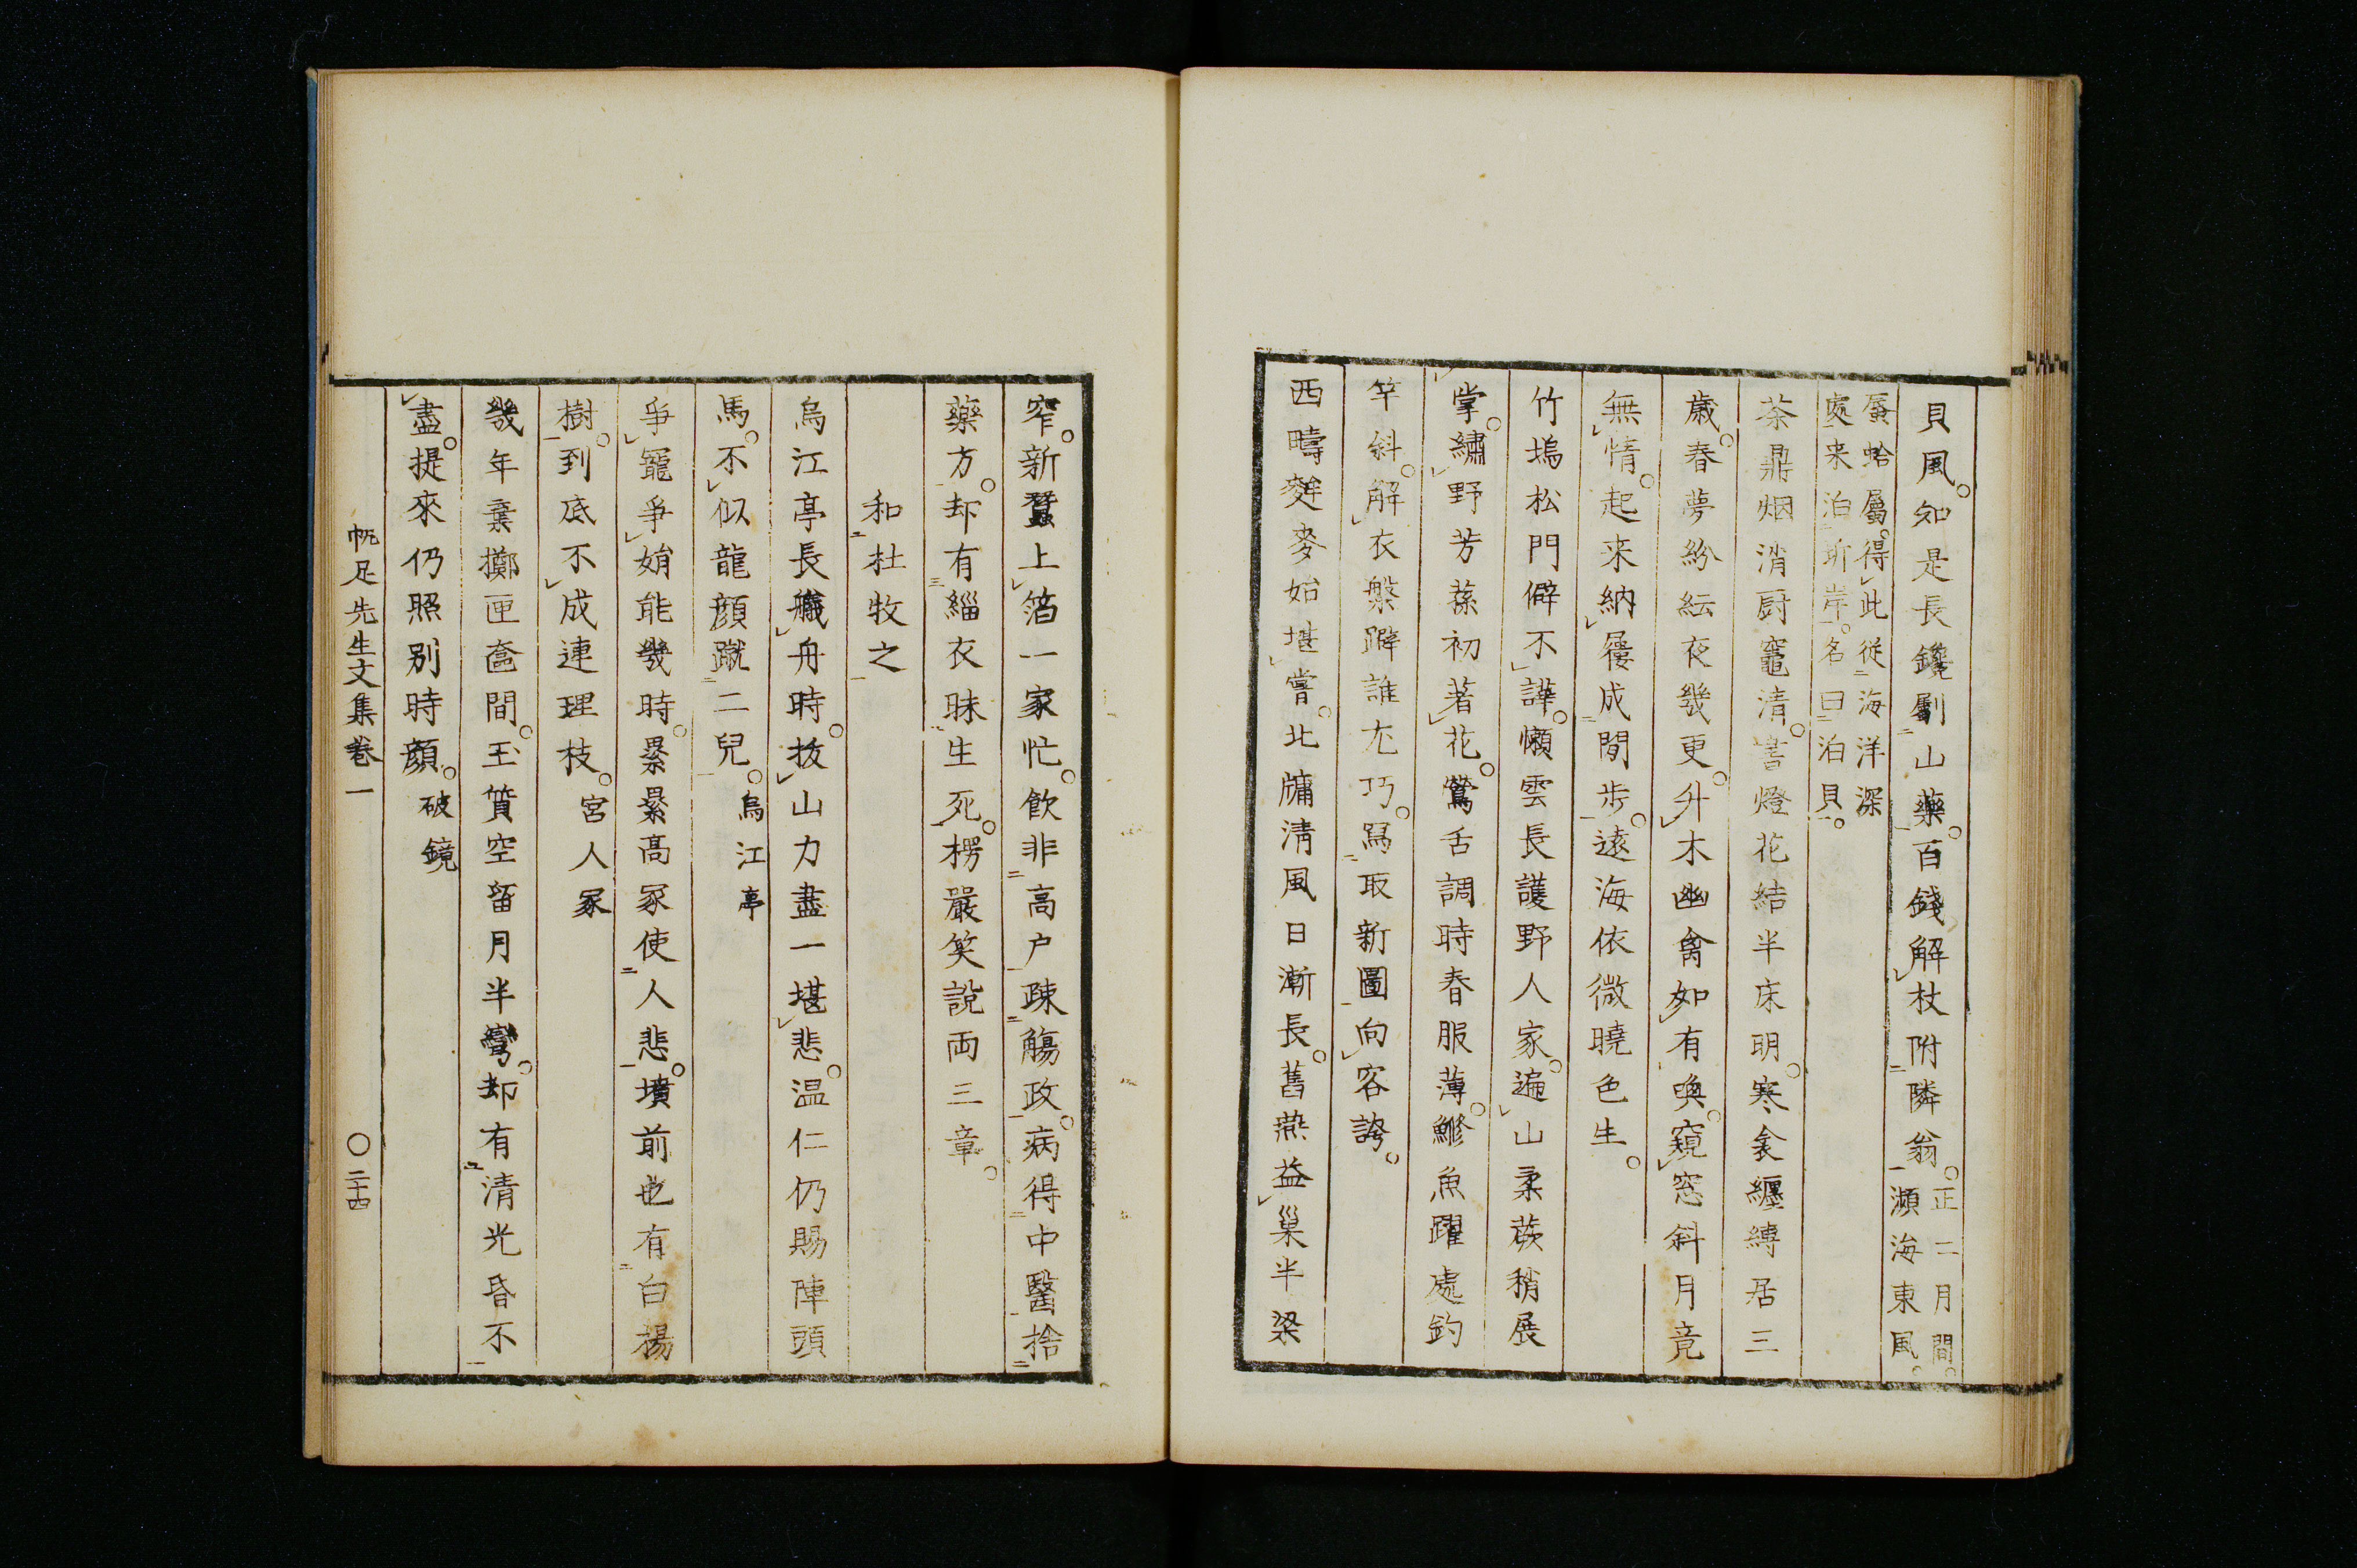 貝風。知是長鑱劚山藥。百錢解杖附隣翁。正二月間。
瀕海東風。
蜃蛤屬。得此從海洋深
處来泊斯岸。名曰泊貝。
茶鼎烟消厨竈清。書燈花結半床明。寒衾纏縛居三
歳。春夢紛紜夜幾更。升木幽禽如有喚。窺窓斜月竟
無情。起来納屨成閒步。遠海依微曉色生。
竹塢松門僻不譁。懶雲長護野人家。遍山柔蕨稍展
掌。繡野芳蓀初著花。鶯舌調時春服薄。鰺魚躍處釣
竿斜。解衣槃躃誰尢巧。寫取新圖向客誇。
西疇麰麥始堪嘗。北牖清風日漸長。舊燕益巢半梁
窄。新蠶上箔一家忙。飲非高户疎觴政。病得中醫捨
藥方。却有緇衣昧生死。楞嚴笑説両三章。
和杜牧之
烏江亭長艤舟時。拔山力盡一堪悲。温仁仍賜陣頭
馬。不似龍顔蹴二兒。烏江亭
爭寵爭娋能幾時。纍纍高冢使人悲。墳前也有白楊
樹。到底不成連理枝。宮人冢
幾年棄擲匣奩間。玉質空留月半彎。却有清光昏不
盡。提來仍照别時顔。破鏡
帆足先生文集巻一
〇二十四